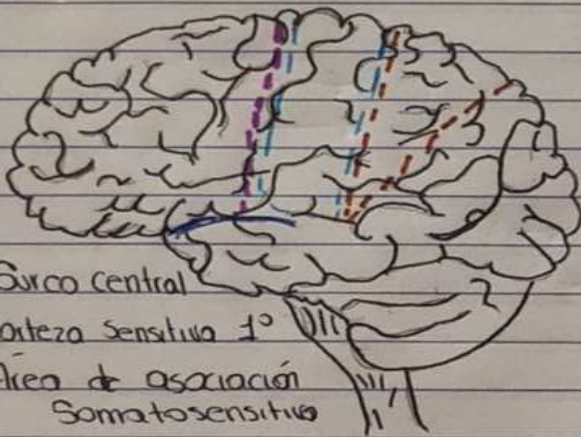 Surco central
orteza sensitiva 1°
Área de asociación
Somatosensitiva